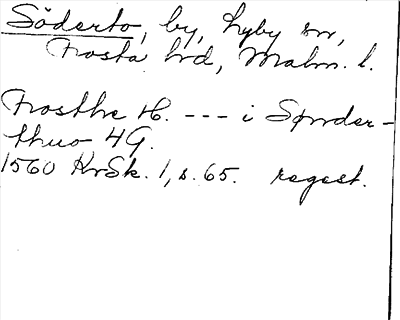 Söderto, by, Lyby sn,
Frosta hrd, Malm. l.
Frosthe H. --- i Sønder-
thuo 4 G.
1560 KrSk. 1, s. 65. regest.